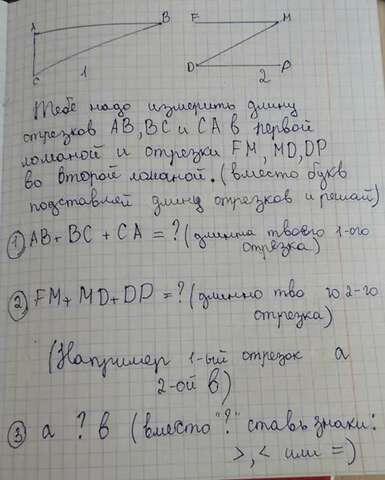 A B F M
C 1 D 2 P
Тебе надо измерить длину
отрезков AB, BC и CA в первой
ломаной и отрезки FM, MD, DP
во второй ломаной. (вместо букв
подставляй длину отрезков и решай)
① AB + BC + CA = ? (длинна твоего 1-ого
отрезка)
② FM + MD + DP = ? (длинно тво го 2-го
отрезка)
(Например 1-ый отрезок a
2-ой в)
③ a ? в (вместо "?" ставь знаки:
>, < или =)